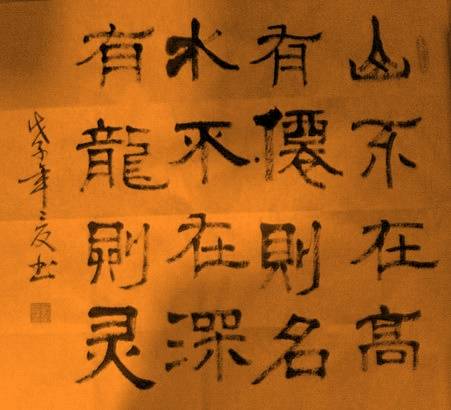 山不在高
有僊則名
水不在深
有龍則灵
戊子年夏书